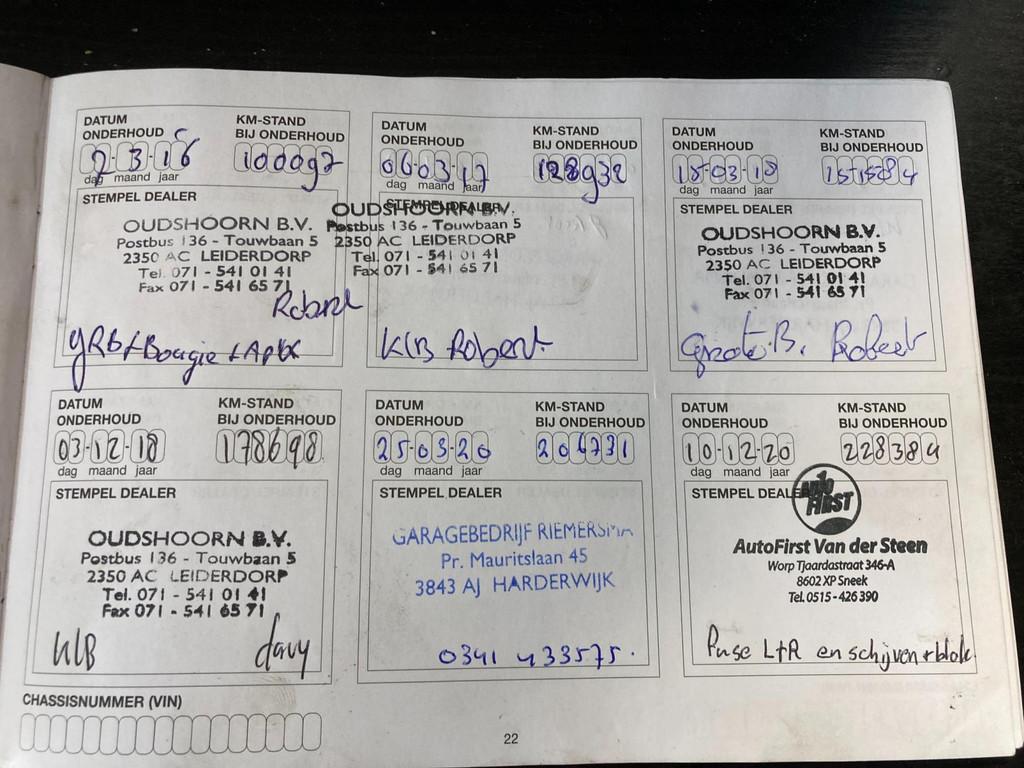 DATUM
ONDERHOUD
2-3-16
dag maand jaar
KM-STAND
BIJ ONDERHOUD
100097
STEMPEL DEALER
OUDSHOORN B.V.
Postbus 136 - Touwbaan 5
2350 AC LEIDERDORP
Tel. 071 - 541 01 41
Fax 071 - 541 65 71
Robert
gRB+Bougie+APK
DATUM
ONDERHOUD
06-03-17
dag maand jaar
KM-STAND
BIJ ONDERHOUD
128932
STEMPEL DEALER
OUDSHOORN B.V.
Postbus 136 - Touwbaan 5
2350 AC LEIDERDORP
Tel. 071 - 541 01 41
Fax 071 - 541 65 71
KlB Robert
DATUM
ONDERHOUD
15-03-18
dag maand jaar
KM-STAND
BIJ ONDERHOUD
STEMPEL DEALER
OUDSHOORN B.V.
Postbus 136 - Touwbaan 5
2350 AC LEIDERDORP
Tel. 071 - 541 01 41
Fax 071 - 541 65 71
Grote B. Robert
DATUM
ONDERHOUD
03-12-18
dag maand jaar
KM-STAND
BIJ ONDERHOUD
178698
STEMPEL DEALER
OUDSHOORN B.V.
Postbus 136 - Touwbaan 5
2350 AC LEIDERDORP
Tel. 071 - 541 01 41
Fax 071 - 541 65 71
KlB davy
DATUM
ONDERHOUD
25-03-20
dag maand jaar
KM-STAND
BIJ ONDERHOUD
206731
STEMPEL DEALER
GARAGEBEDRIJF RIEMERSMA
Pr. Mauritslaan 45
3843 AJ HARDERWIJK
0341 433575.
DATUM
ONDERHOUD
10-12-20
dag maand jaar
KM-STAND
BIJ ONDERHOUD
228384
STEMPEL DEALER
AUTO FIRST
AutoFirst Van der Steen
Worp Tjaardastraat 346-A
8602 XP Sneek
Tel. 0515 - 426 390
L+R en schijven+blok
CHASSISNUMMER (VIN)
22